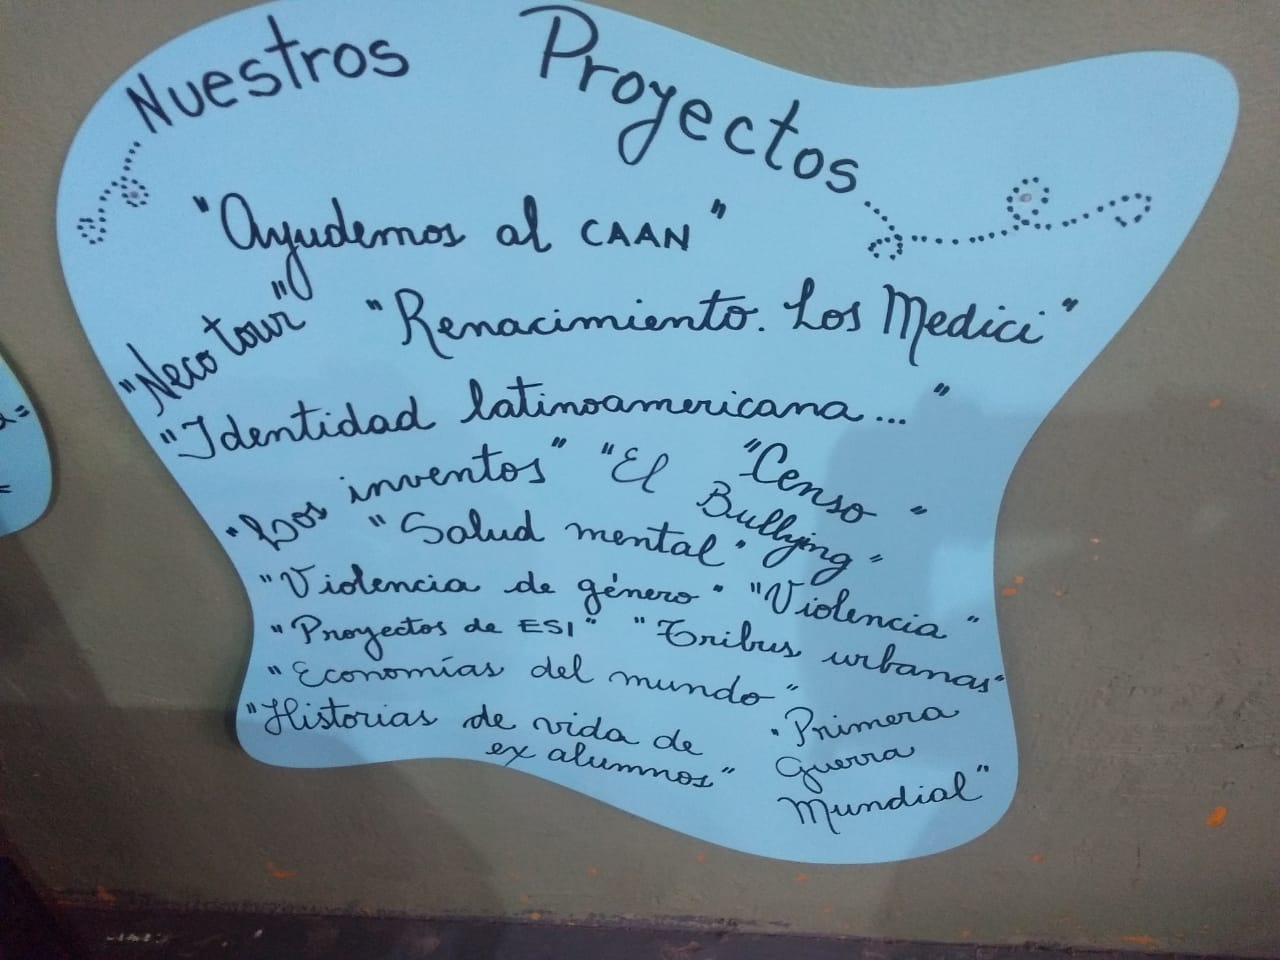 Nuestros Proyectos
"Ayudemos al CAAN"
"Neco tour"
"Renacimiento. Los Medici"
"Identidad latinoamericana..."
"Los inventos"
"El Bullying"
"Censo"
"Salud mental"
"Violencia de género" "Violencia"
"Proyectos de ESI" "Tribus urbanas"
"Economías del mundo"
"Historias de vida de
ex alumnos"
"Primera
Guerra
Mundial"